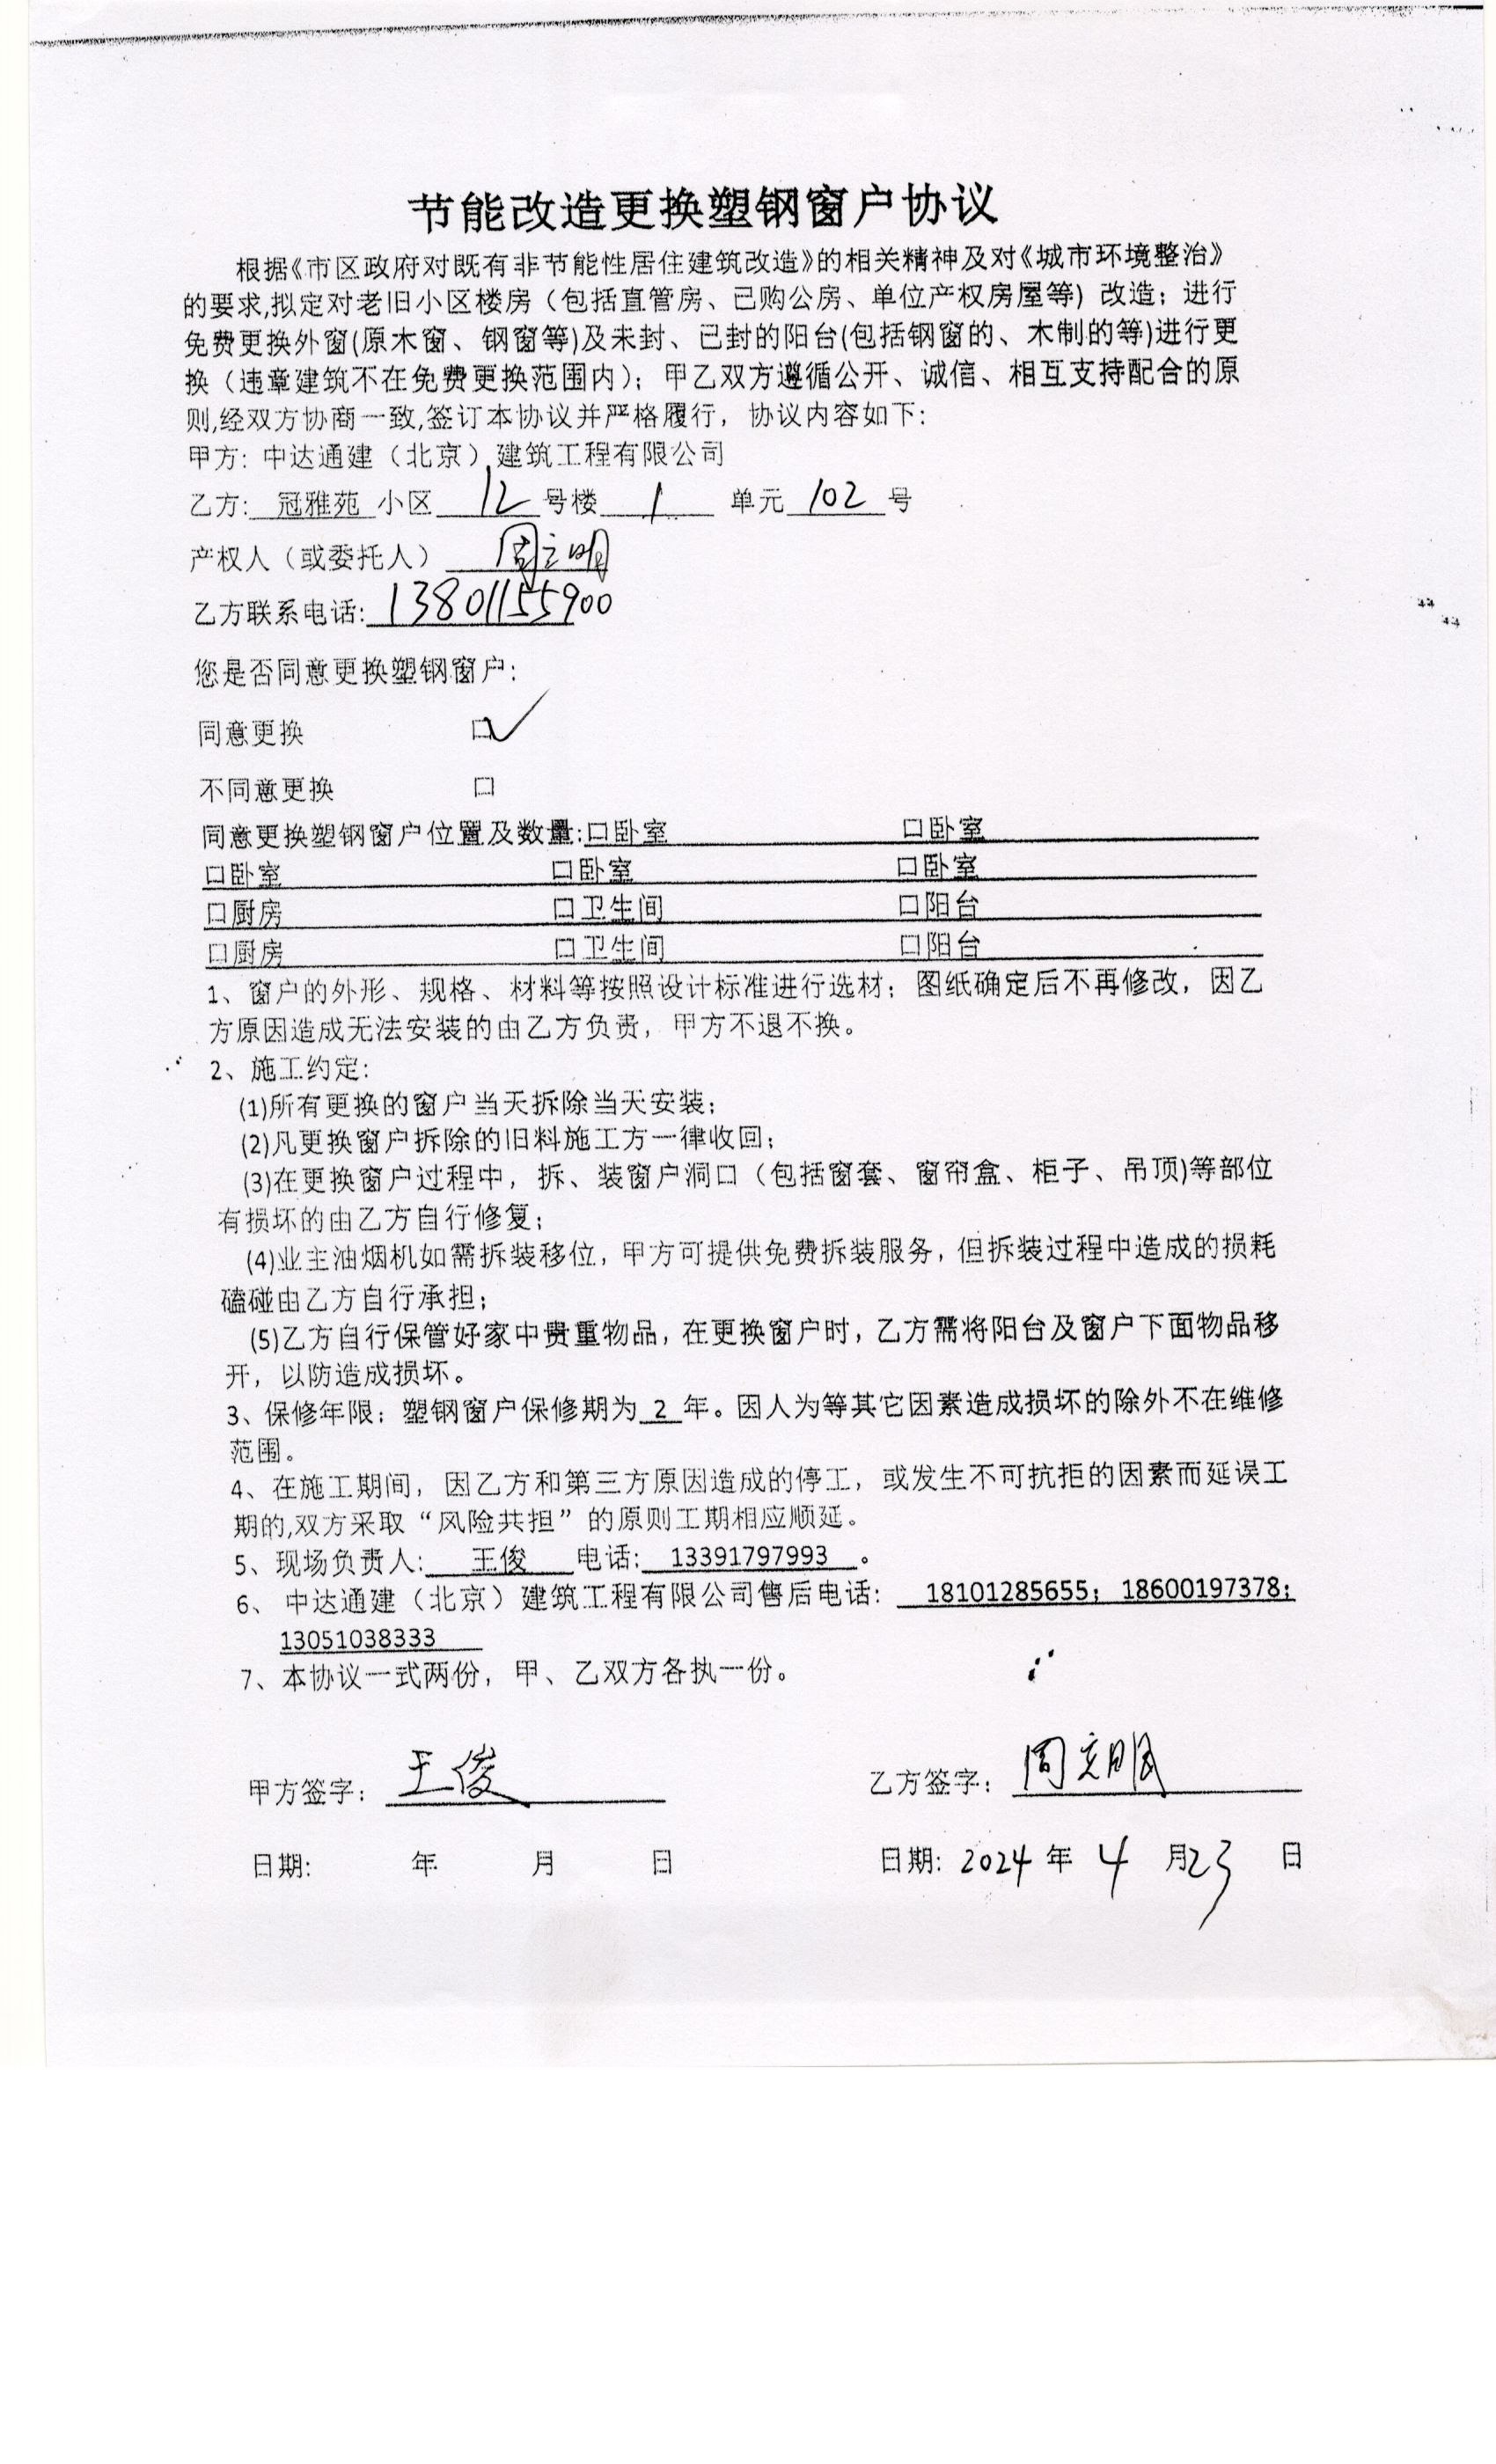 节能改造更换塑钢窗户协议
根据《市区政府对既有非节能性居住建筑改造》的相关精神及对《城市环境整治》
的要求,拟定对老旧小区楼房（包括直管房、已购公房、单位产权房屋等）改造；进行
免费更换外窗(原木窗、钢窗等)及未封、已封的阳台(包括钢窗的、木制的等)进行更
换（违章建筑不在免费更换范围内）；甲乙双方遵循公开、诚信、相互支持配合的原
则,经双方协商一致,签订本协议并严格履行，协议内容如下：
甲方：中达通建（北京）建筑工程有限公司
乙方: 冠雅苑 小区 12 号楼 1 单元 102 号
产权人（或委托人） 周立明
乙方联系电话: 13801155900
您是否同意更换塑钢窗户：
同意更换 □✓
不同意更换 □
同意更换塑钢窗户位置及数量:□卧室 □卧室
□卧室 □卧室 □卧室
□厨房 □卫生间 □阳台
□厨房 □卫生间 □阳台
1、窗户的外形、规格、材料等按照设计标准进行选材；图纸确定后不再修改，因乙
方原因造成无法安装的由乙方负责，甲方不退不换。
2、施工约定：
(1)所有更换的窗户当天拆除当天安装；
(2)凡更换窗户拆除的旧料施工方一律收回；
(3)在更换窗户过程中，拆、装窗户洞口（包括窗套、窗帘盒、柜子、吊顶)等部位
有损坏的由乙方自行修复；
(4)业主油烟机如需拆装移位，甲方可提供免费拆装服务，但拆装过程中造成的损耗
磕碰由乙方自行承担；
(5)乙方自行保管好家中贵重物品，在更换窗户时，乙方需将阳台及窗户下面物品移
开，以防造成损坏。
3、保修年限：塑钢窗户保修期为 2 年。因人为等其它因素造成损坏的除外不在维修
范围。
4、在施工期间，因乙方和第三方原因造成的停工，或发生不可抗拒的因素而延误工
期的,双方采取“风险共担”的原则工期相应顺延。
5、现场负责人: 王俊 电话: 13391797993 。
6、中达通建（北京）建筑工程有限公司售后电话: 18101285655；18600197378；
13051038333
7、本协议一式两份，甲、乙双方各执一份。
甲方签字： 王俊 乙方签字： 周立明
日期: 年 月 日 日期: 2024 年 4 月 23 日